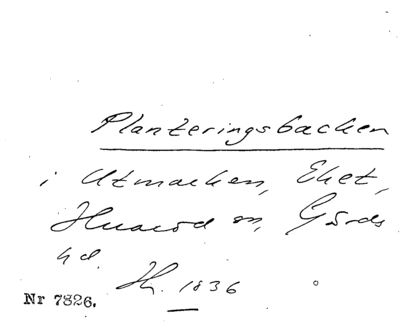 Planteringsbacken
i Utmarken, Eket,
Huaröd sn, Gärds
hd.
Hh. 1836
Nr 7826.